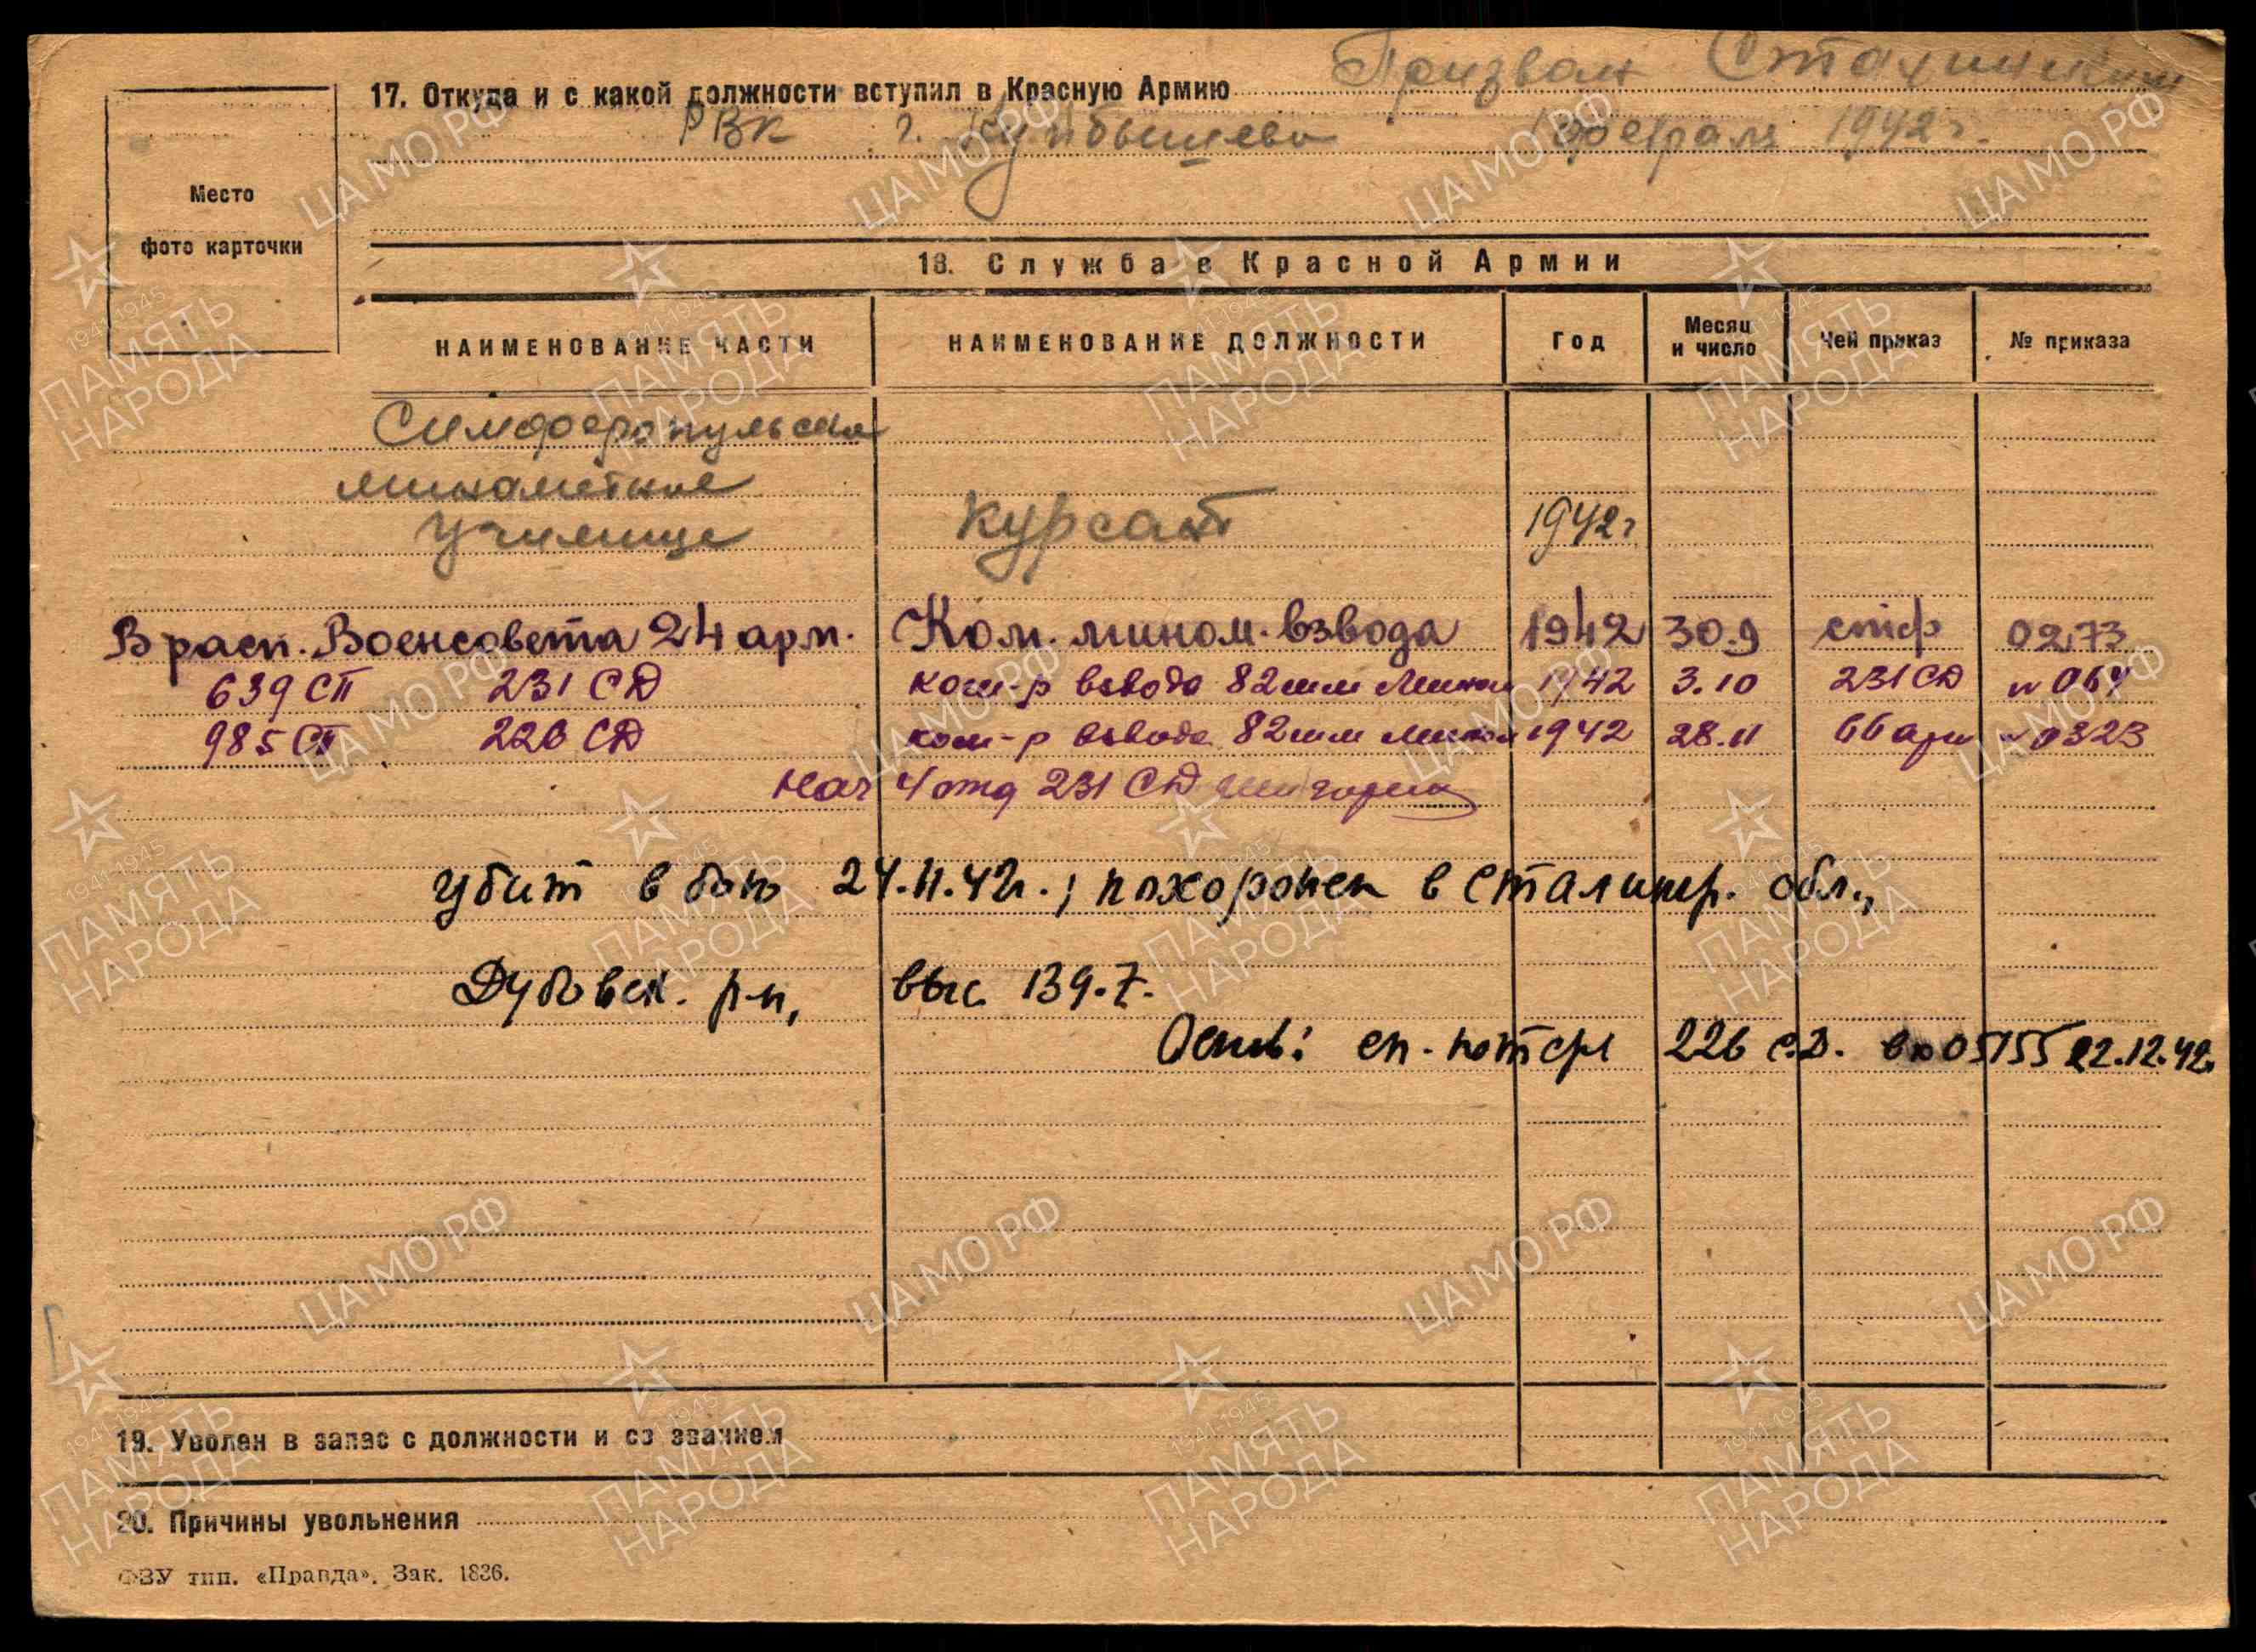 17. Откуда и с какой должности вступил в Красную Армию Призван
РВК г. Куйбышева февраля 1942 г.
Место
фото карточки
18. Служба в Красной Армии
НАИМЕНОВАНИЕ ЧАСТИ НАИМЕНОВАНИЕ ДОЛЖНОСТИ Год Месяц и число Чей приказ № приказа
Симферопульское
минометное
училище курсант 1942 г
В расп. Военсовета 24 арм. Ком. мином. взвода 1942 30.9 стф 0273
639 СП 231 СД ком-р взвода 82 мм Мином 1942 3.10 231 СД № 064
985 СП 226 СД ком-р взвода 82 мм Мином 1942 28.11 66 арм № 0323
Нач 4 отд 231 СД
убит в бою 24.11.42г.; похоронен в Сталингр. обл.,
Дубовск. р-н, выс. 139.7.
Основ: сп. потерь 226 с.д. вх 05155 22.12.42.
19. Уволен в запас с должности и со званием
20. Причины увольнения
ФЗУ тип. «Правда». Зак. 1836.
ЦА МО РФ
1941-1945
ПАМЯТЬ
НАРОДА